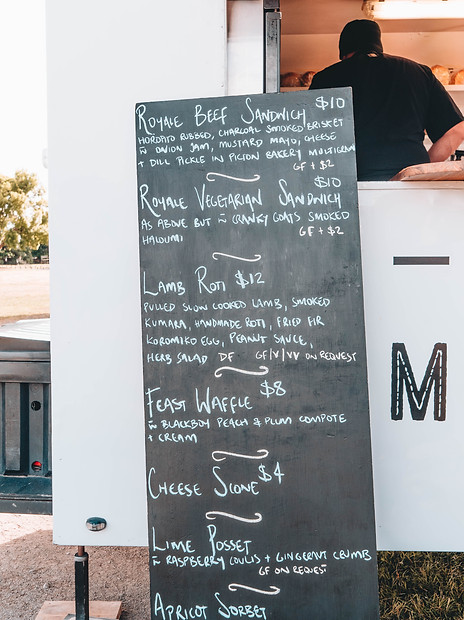 Royale Beef Sandwich $10
Horopito rubbed, charcoal smoked brisket
w̄ onion jam, mustard mayo, cheese
+ dill pickle in Picton Bakery multigrain
GF + $2
Royale Vegetarian Sandwich $10
As above but w̄ Cranky Goats smoked
haloumi GF + $2
Lamb Roti $12
Pulled slow cooked lamb, smoked
kumara, handmade roti, fried Fir
Koromiko egg, peanut sauce,
herb salad DF GF/V/VV on request
Feast Waffle $8
w̄ Blackboy peach & plum compote
+ cream
Cheese Scone $4
Lime Posset
w̄ raspberry coulis + gingernut crumb
GF on request
Apricot Sorbet
M